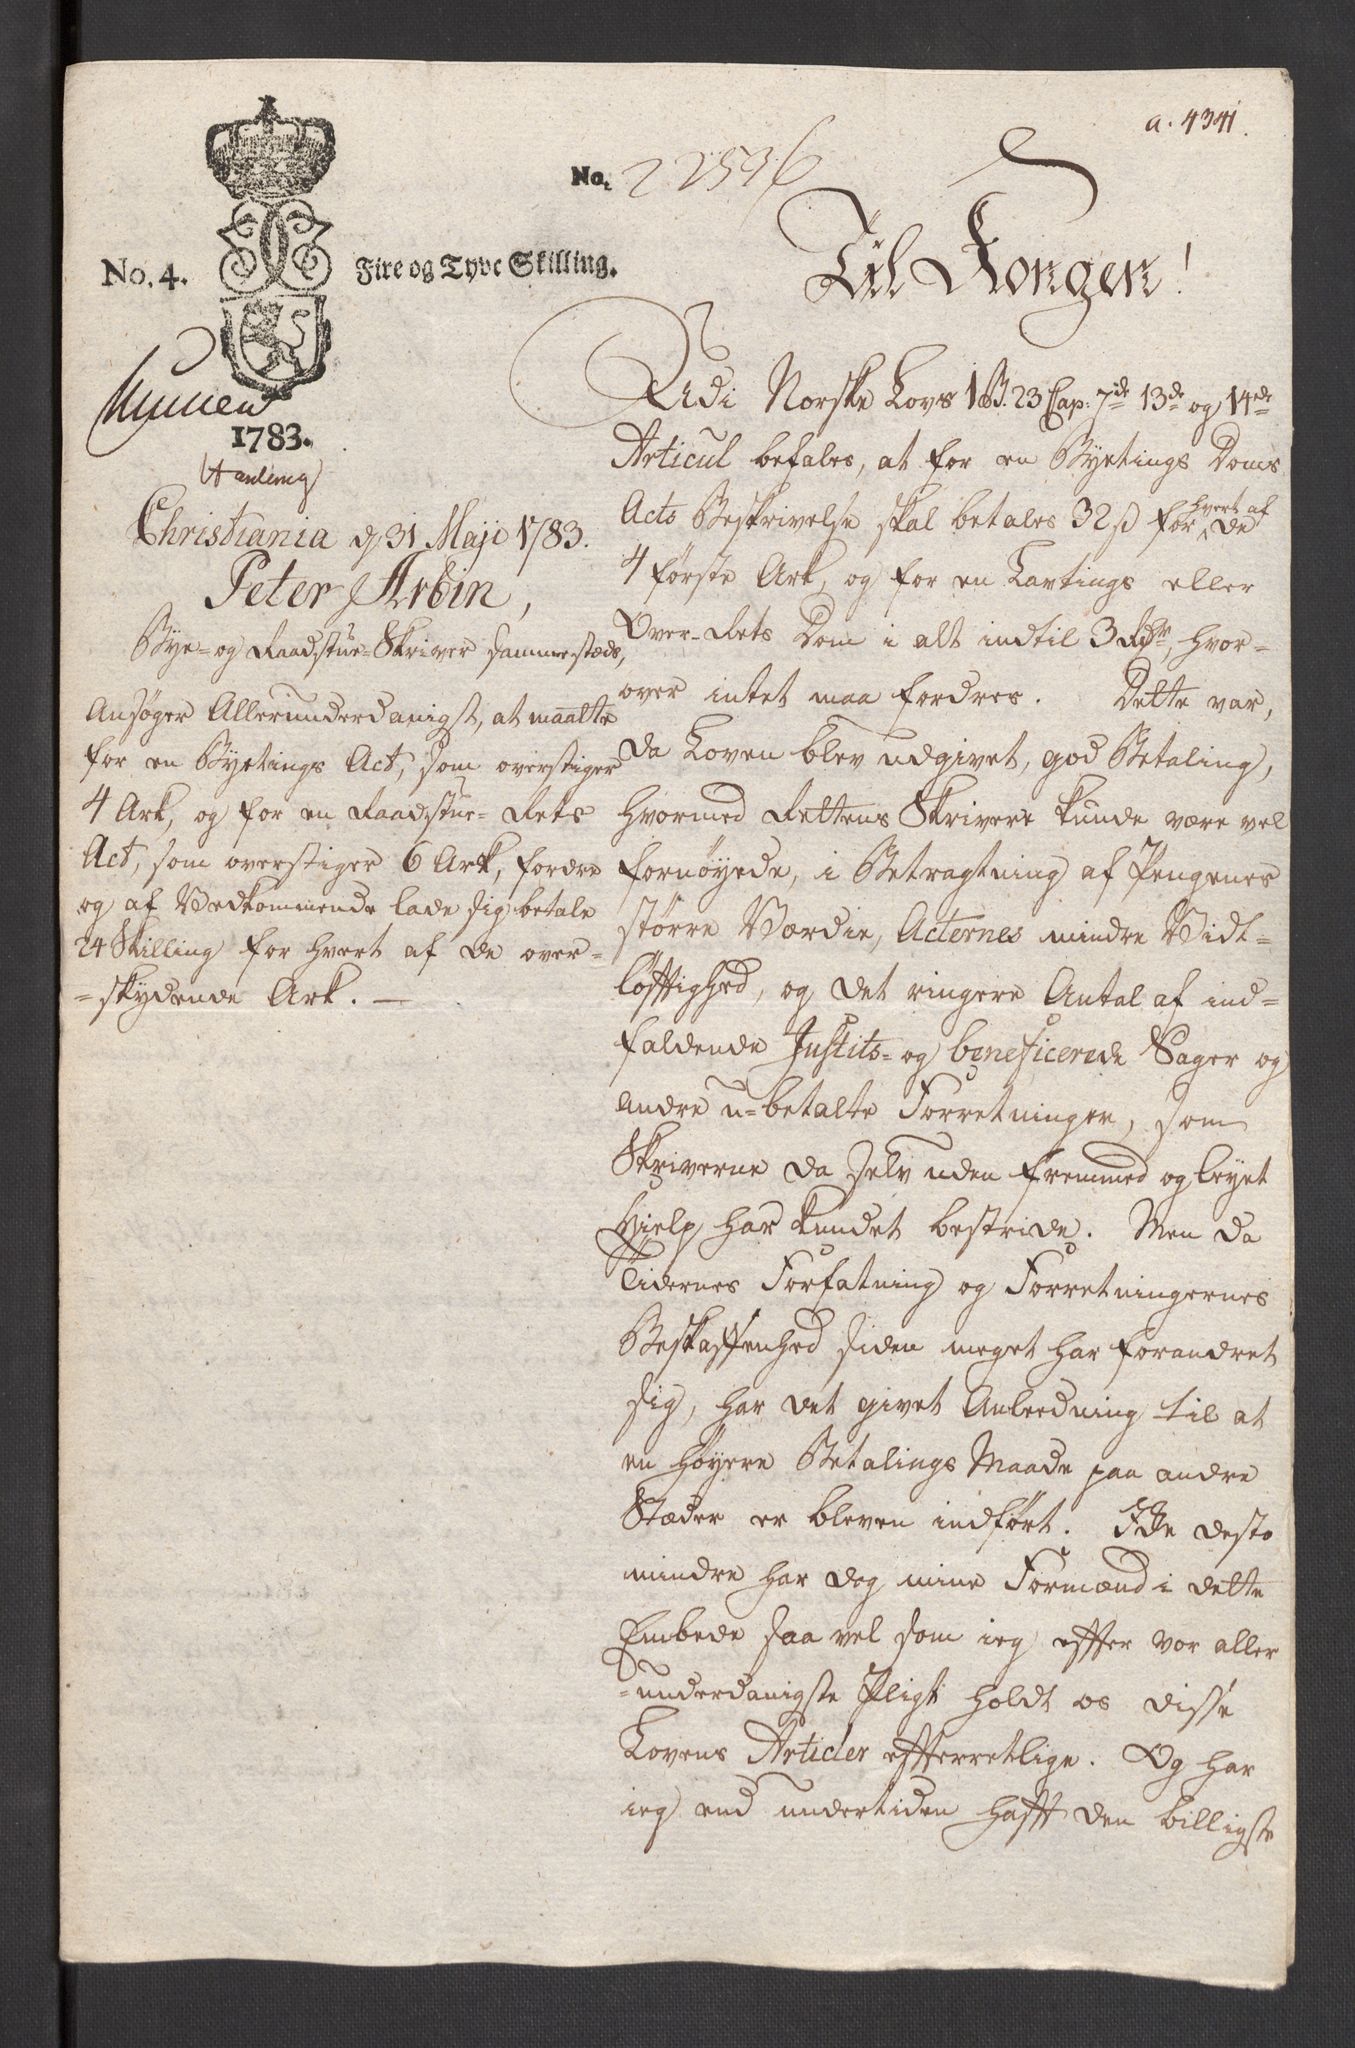 a. 4341.
No. 22596
No. 4. Fire og Tyve Skilling.
1783.
Christiania d. 31 Maji 1783.
Peter Arbin,
Bye- og Raadstue-Skriver sammestæds,
Ansøger Allerunderdanigst, at maatte
for en Byetings Act, som overstiger
4 Ark, og for en Raadstue-Rets
Act, som overstiger 6 Ark, fordre
og af Vedkommende lade sig betale
24 Skilling for hvert af de over-
=skydende Ark. —
Til Kongen!
Udi Norske Lovs 1 B. 23 Cap: 7de 13de og 14de
Articul befales, at for en Byetings Doms
Acts Beskrivelse skal betales 32 ß for hvert af de
4 første Ark, og for en Lavtings eller
Over-Rets Dom i alt indtil 3 Rdr, hvor-
over intet maa fordres. Dette var,
da Loven blev udgivet, god Betaling,
hvormed Rettens Skrivere kunde være vel
fornøyede, i Betragtning af Pengenes
større Værdie, Acternes mindre Vidt-
løfftighed, og det ringere Antal af ind-
faldende Justits- og beneficerede Sager og
andre u-betalte Forretninger, som
Skriverne da selv uden fremmed og leyet
Hielp har kundet bestride. Men da
Tidernes Forfatning og Forretningernes
Beskaffenhed siden meget har forandret
sig, har det givet Anleedning til at
en høyere Betalings Maade paa andre
Stæder er bleven indført. Ikke desto
mindre har dog mine Formænd i dette
Embede saa vel som ieg effter vor aller
=underdanigste Pligt holdt os disse
Lovens Articler effterretlige. Og har
ieg end undertiden hafft den billigste